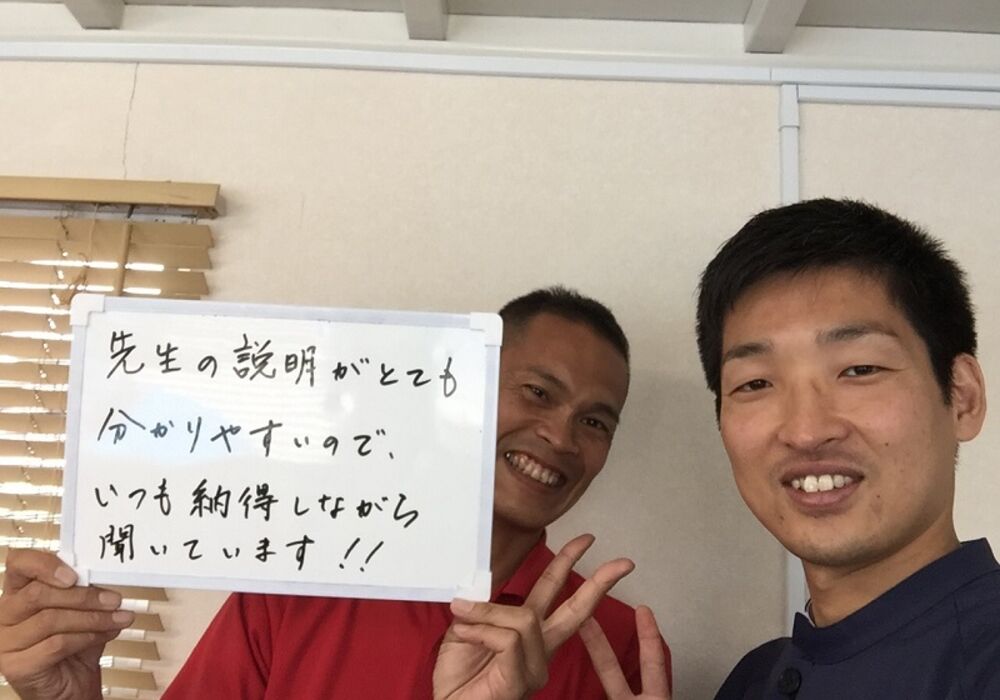 先生の説明がとても
分かりやすいので、
いつも納得しながら
聞いています!!